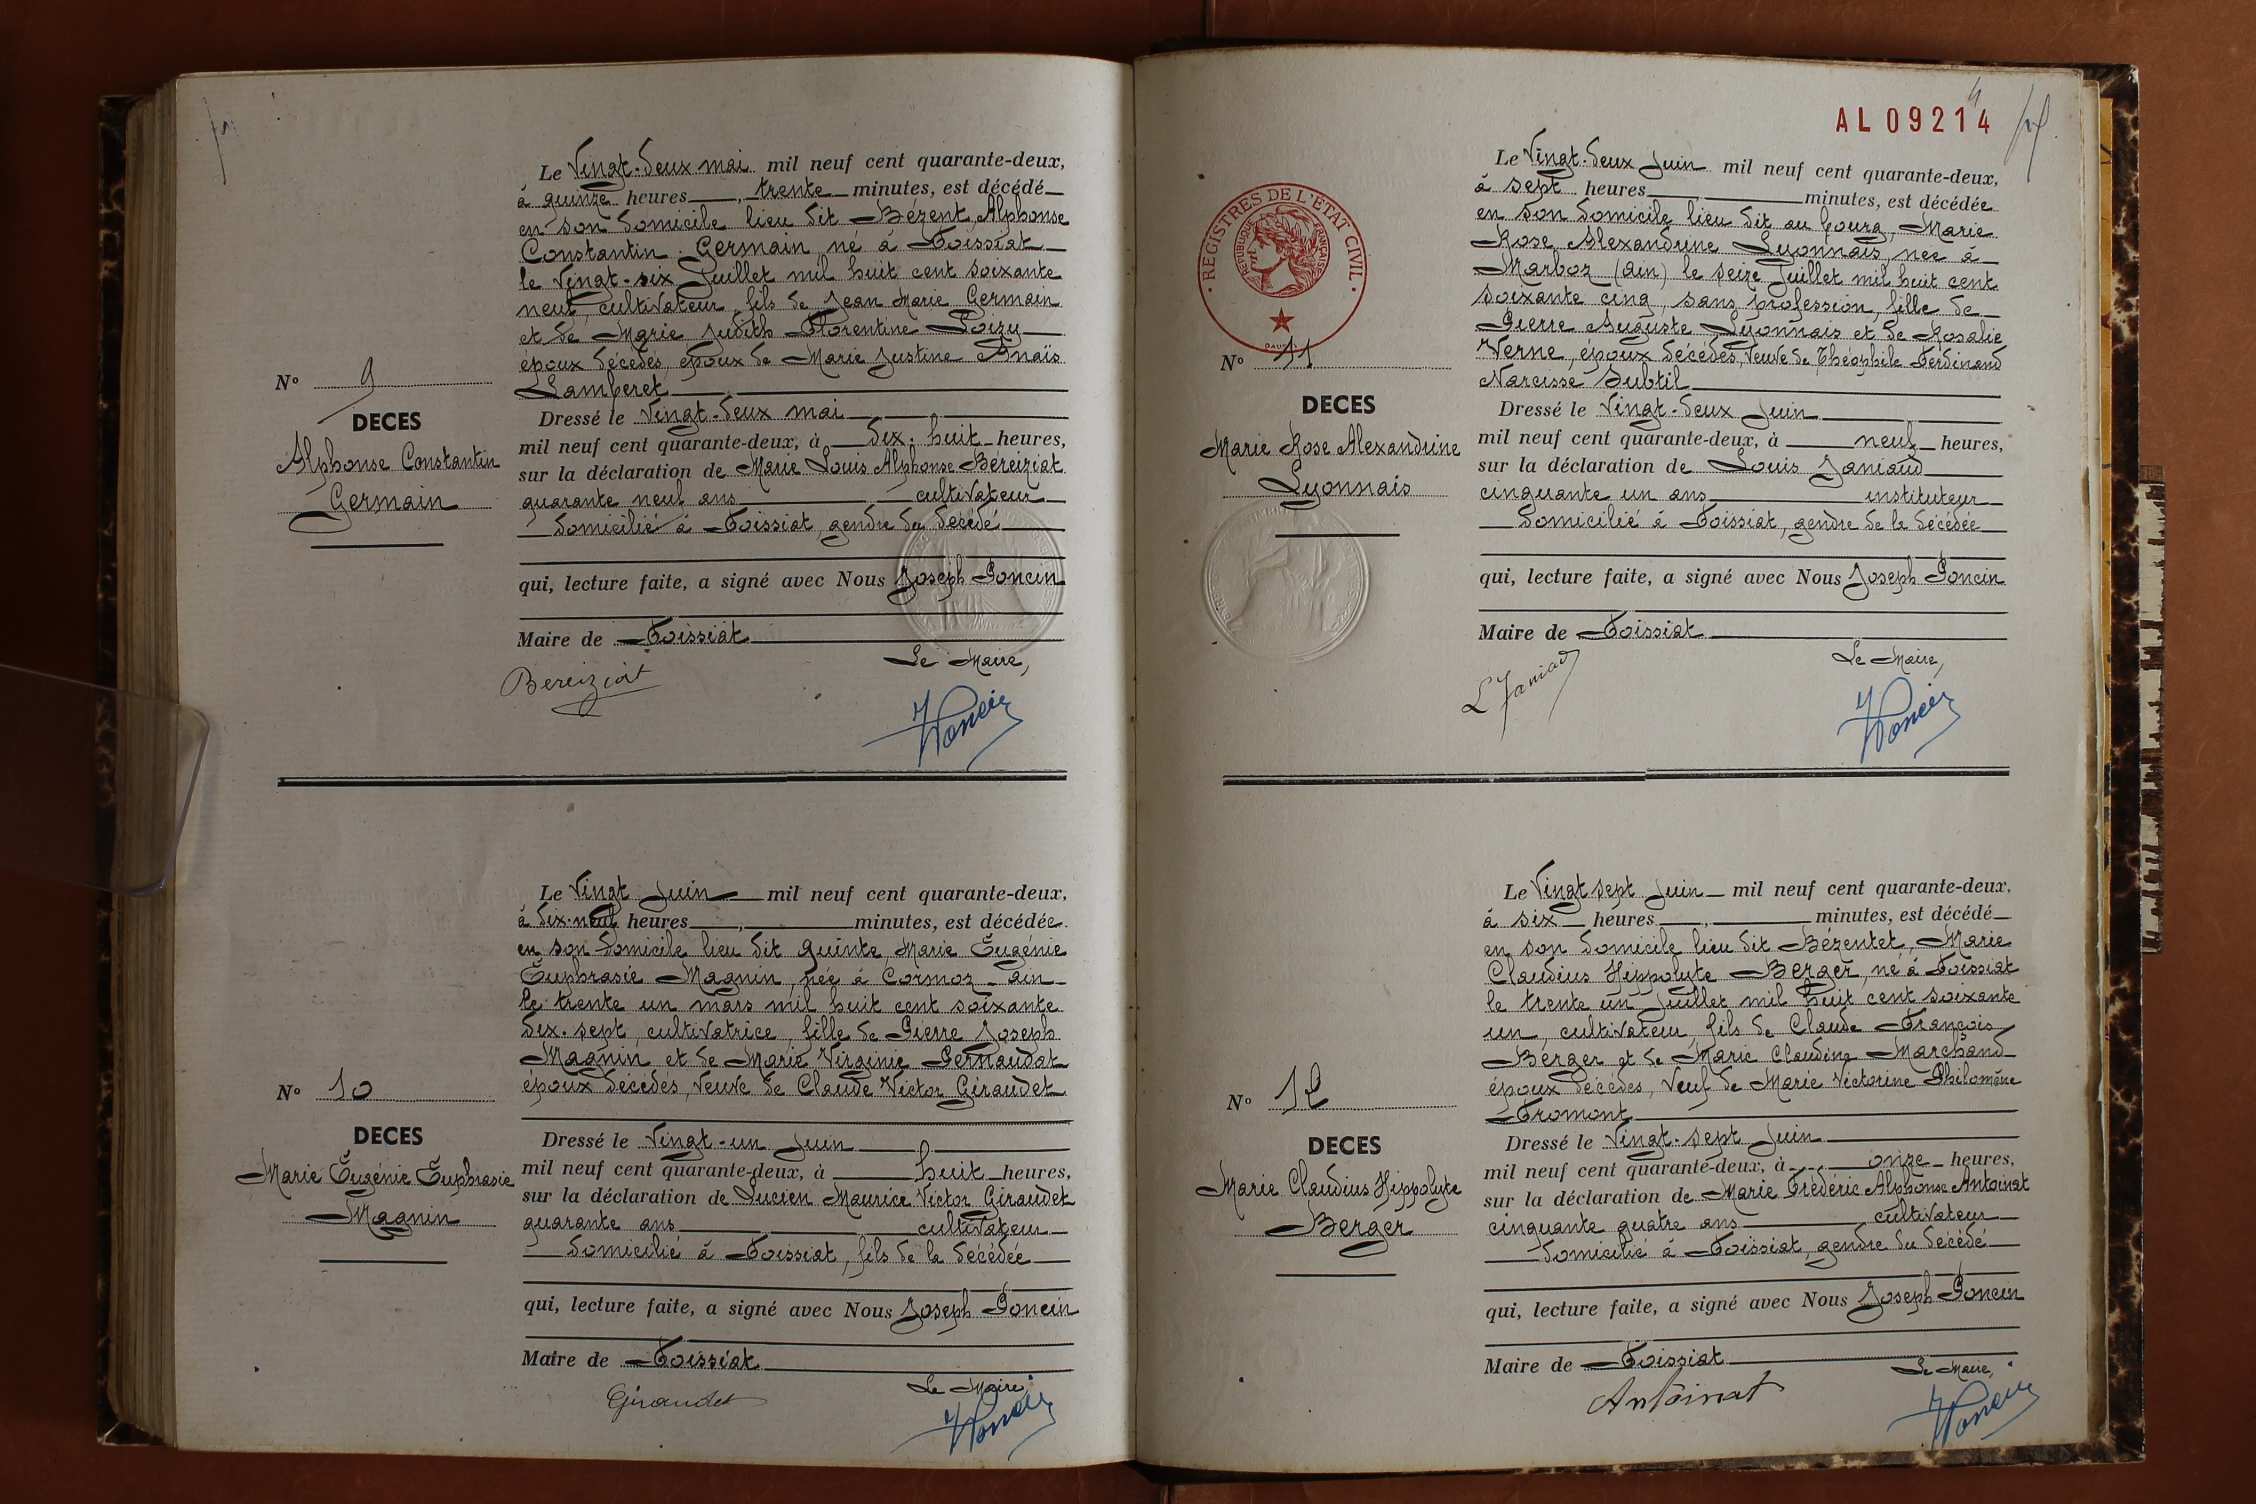 Le Vingt-deux mai mil neuf cent quarante-deux,
à quinze heures trente minutes, est décédé
en son domicile lieu dit Bézent, Alphonse
Constantin Germain né à Foissiat
le vingt-six Juillet mil huit cent soixante
neuf, cultivateur, fils de Jean Marie Germain
et de Marie Judith Florentine Loizy
époux décédés, époux de Marie Justine Anaïs
Lamberet
Dressé le Vingt-deux mai
mil neuf cent quarante-deux, à dix-huit heures,
sur la déclaration de Marie Louis Alphonse Béreiziat
quarante neuf ans cultivateur
domicilié à Foissiat, gendre du décédé
qui, lecture faite, a signé avec Nous Joseph Poncin
Maire de Foissiat
Le Maire,
Bereiziat
JPoncin
N° 9
DECES
Alphonse Constantin
Germain
Le Vingt Juin mil neuf cent quarante-deux,
à dix-neuf heures minutes, est décédée
en son domicile lieu dit Quinte, Marie Eugénie
Euphrasie Magnin, née à Cormoz - Ain -
le trente un mars mil huit cent soixante
dix-sept, cultivatrice, fille de Pierre Joseph
Magnin et de Marie Virginie Pernaudat
époux décédés, veuve de Claude Victor Giraudet
N° 10
DECES
Marie Eugénie Euphrasie
Magnin
Dressé le Vingt-un Juin
mil neuf cent quarante-deux, à huit heures,
sur la déclaration de Lucien Maurice Victor Giraudet
quarante ans cultivateur
domicilié à Foissiat, fils de la décédée
qui, lecture faite, a signé avec Nous Joseph Poncin
Maire de Foissiat
Le Maire
Giraudet
JPoncin
AL 09214
REGISTRES DE L'ETAT CIVIL
REPUBLIQUE FRANÇAISE
Le Vingt-deux Juin mil neuf cent quarante-deux,
à sept heures minutes, est décédée
en son domicile lieu dit au bourg, Marie
Rose Alexandrine Lyonnais, née à
Marboz (Ain) le seize Juillet mil huit cent
soixante cinq, sans profession, fille de
Pierre Auguste Lyonnais et de Rosalie
Verne, époux décédés, veuve de Théophile Ferdinand
Narcisse Subtil
N° 11
DECES
Marie Rose Alexandrine
Lyonnais
Dressé le Vingt-deux Juin
mil neuf cent quarante-deux, à neuf heures,
sur la déclaration de Louis Janiaud
cinquante un ans instituteur
domicilié à Foissiat, gendre de la décédée
qui, lecture faite, a signé avec Nous Joseph Poncin
Maire de Foissiat
Le Maire,
L Janiaud
JPoncin
Le Vingt sept Juin mil neuf cent quarante-deux,
à six heures minutes, est décédé
en son domicile lieu dit Bézentet, Marie
Claudius Hippolyte Berger, né à Foissiat
le trente un Juillet mil huit cent soixante
un, cultivateur, fils de Claude François
Berger et de Marie Claudine Marchand
époux décédés, veuf de Marie Victorine Philomène
Fromont
N° 12
DECES
Marie Claudius Hippolyte
Berger
Dressé le Vingt-sept Juin
mil neuf cent quarante-deux, à onze heures,
sur la déclaration de Marie Frédéric Alphonse Antoinat
cinquante quatre ans cultivateur
domicilié à Foissiat, gendre du décédé
qui, lecture faite, a signé avec Nous Joseph Poncin
Maire de Foissiat
Le Maire,
Antoinat
JPoncin